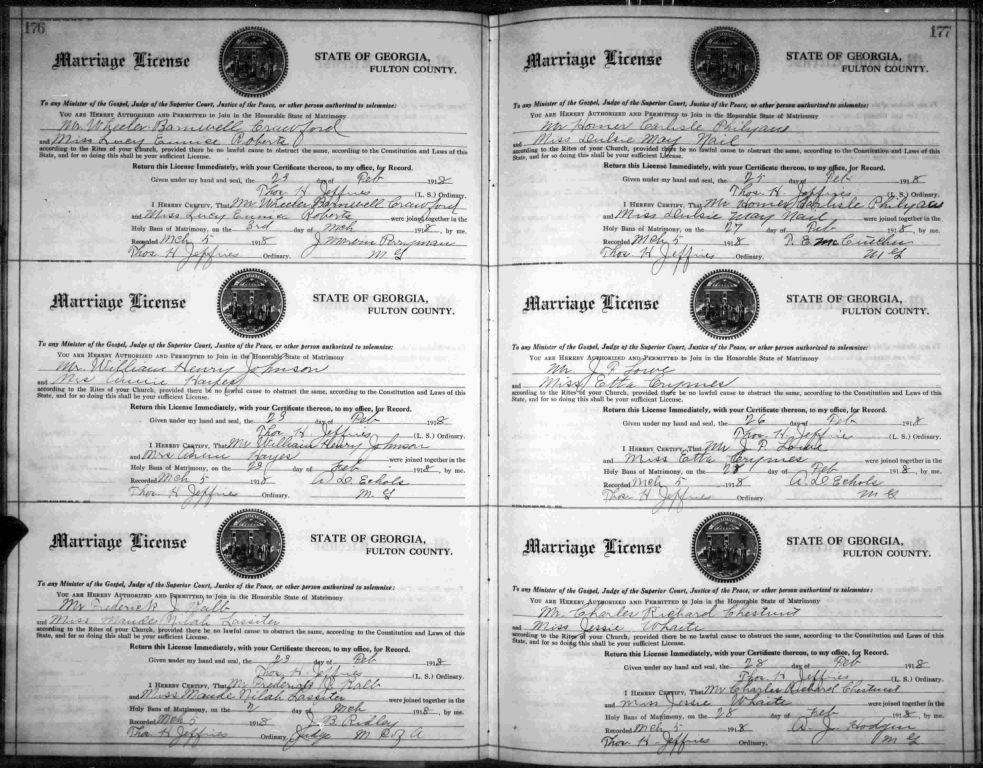 176
Marriage License
STATE OF GEORGIA,
FULTON COUNTY.
To any Minister of the Gospel, Judge of the Superior Court, Justice of the Peace, or other person authorized to solemnize:
YOU ARE HEREBY AUTHORIZED AND PERMITTED to Join in the Honorable State of Matrimony
Mr. Wheeler Barnwell Crawford
and Miss Lucy Eunice Roberts
according to the Rites of your Church, provided there be no lawful cause to obstruct the same, according to the Constitution and Laws of this
State, and for so doing this shall be your sufficient License.
Return this License Immediately, with your Certificate thereon, to my office, for Record.
Given under my hand and seal, the 23 day of Feb 1918
Thos. H. Jeffries (L. S.) Ordinary.
I HEREBY CERTIFY, That Mr Wheeler Barnwell Crawford
and Miss Lucy Eunice Roberts were joined together in the
Holy Bans of Matrimony, on the 3rd day of Mch 1918, by me.
Recorded Mch 5 1918 J Perryman
Thos H Jeffries Ordinary. M G
Marriage License
STATE OF GEORGIA,
FULTON COUNTY.
To any Minister of the Gospel, Judge of the Superior Court, Justice of the Peace, or other person authorized to solemnize:
YOU ARE HEREBY AUTHORIZED AND PERMITTED to Join in the Honorable State of Matrimony
Mr. William Henry Johnson
and Mrs Annie Hayes
according to the Rites of your Church, provided there be no lawful cause to obstruct the same, according to the Constitution and Laws of this
State, and for so doing this shall be your sufficient License.
Return this License Immediately, with your Certificate thereon, to my office, for Record.
Given under my hand and seal, the 23 day of Feb 1918
Thos. H Jeffries (L. S.) Ordinary.
I HEREBY CERTIFY, That Mr William Henry Johnson
and Mrs Annie Hayes were joined together in the
Holy Bans of Matrimony, on the 23 day of Feb 1918, by me.
Recorded Mch 5 1918 A. L. Echols
Thos H Jeffries Ordinary. M. G
Marriage License
STATE OF GEORGIA,
FULTON COUNTY.
To any Minister of the Gospel, Judge of the Superior Court, Justice of the Peace, or other person authorized to solemnize:
YOU ARE HEREBY AUTHORIZED AND PERMITTED to Join in the Honorable State of Matrimony
Mr Frederick J. Kalb
and Miss Maude Nilah Lassiter
according to the Rites of your Church, provided there be no lawful cause to obstruct the same, according to the Constitution and Laws of this
State, and for so doing this shall be your sufficient License.
Return this License Immediately, with your Certificate thereon, to my office, for Record.
Given under my hand and seal, the 23 day of Feb 1918
Thos H Jeffries (L. S.) Ordinary.
I HEREBY CERTIFY, That Mr Frederick J. Kalb
and Miss Maude Nilah Lassiter were joined together in the
Holy Bans of Matrimony, on the 2 day of Mch 1918, by me.
Recorded Mch 5 1918 J. B. Ridley
Thos H Jeffries Ordinary. Judge M C of A
177
Marriage License
STATE OF GEORGIA,
FULTON COUNTY.
To any Minister of the Gospel, Judge of the Superior Court, Justice of the Peace, or other person authorized to solemnize:
YOU ARE HEREBY AUTHORIZED AND PERMITTED to Join in the Honorable State of Matrimony
Mr Homer Carlisle Philyaw
and Miss May Nail
according to the Rites of your Church, provided there be no lawful cause to obstruct the same, according to the Constitution and Laws of this
State, and for so doing this shall be your sufficient License.
Return this License Immediately, with your Certificate thereon, to my office, for Record.
Given under my hand and seal, the 25 day of Feb 1918
Thos. H. Jeffries (L. S.) Ordinary.
I HEREBY CERTIFY, That Mr Homer Carlisle Philyaw
and Miss May Nail were joined together in the
Holy Bans of Matrimony, on the 27 day of Feb 1918, by me.
Recorded Mch 5 1918
Thos H Jeffries Ordinary. M G
Marriage License
STATE OF GEORGIA,
FULTON COUNTY.
To any Minister of the Gospel, Judge of the Superior Court, Justice of the Peace, or other person authorized to solemnize:
YOU ARE HEREBY AUTHORIZED AND PERMITTED to Join in the Honorable State of Matrimony
Mr. J. P. Lowe
and Miss Etta Crymes
according to the Rites of your Church, provided there be no lawful cause to obstruct the same, according to the Constitution and Laws of this
State, and for so doing this shall be your sufficient License.
Return this License Immediately, with your Certificate thereon, to my office, for Record.
Given under my hand and seal, the 26 day of Feb 1918
Thos. H. Jeffries (L. S.) Ordinary.
I HEREBY CERTIFY, That Mr J. P. Lowe
and Miss Etta Crymes were joined together in the
Holy Bans of Matrimony, on the 28 day of Feb 1918, by me.
Recorded Mch 5 1918 A. L. Echols
Thos H Jeffries Ordinary. M G
Marriage License
STATE OF GEORGIA,
FULTON COUNTY.
To any Minister of the Gospel, Judge of the Superior Court, Justice of the Peace, or other person authorized to solemnize:
YOU ARE HEREBY AUTHORIZED AND PERMITTED to Join in the Honorable State of Matrimony
Mr. Charles Richard Chestnut
and Miss Jessie Whaite
according to the Rites of your Church, provided there be no lawful cause to obstruct the same, according to the Constitution and Laws of this
State, and for so doing this shall be your sufficient License.
Return this License Immediately, with your Certificate thereon, to my office, for Record.
Given under my hand and seal, the 28 day of Feb 1918
Thos H Jeffries (L. S.) Ordinary.
I HEREBY CERTIFY, That Mr Charles Richard Chestnut
and Miss Jessie Whaite were joined together in the
Holy Bans of Matrimony, on the 28 day of Feb 1918, by me.
Recorded Mch 5 1918
Thos. H. Jeffries Ordinary. M G